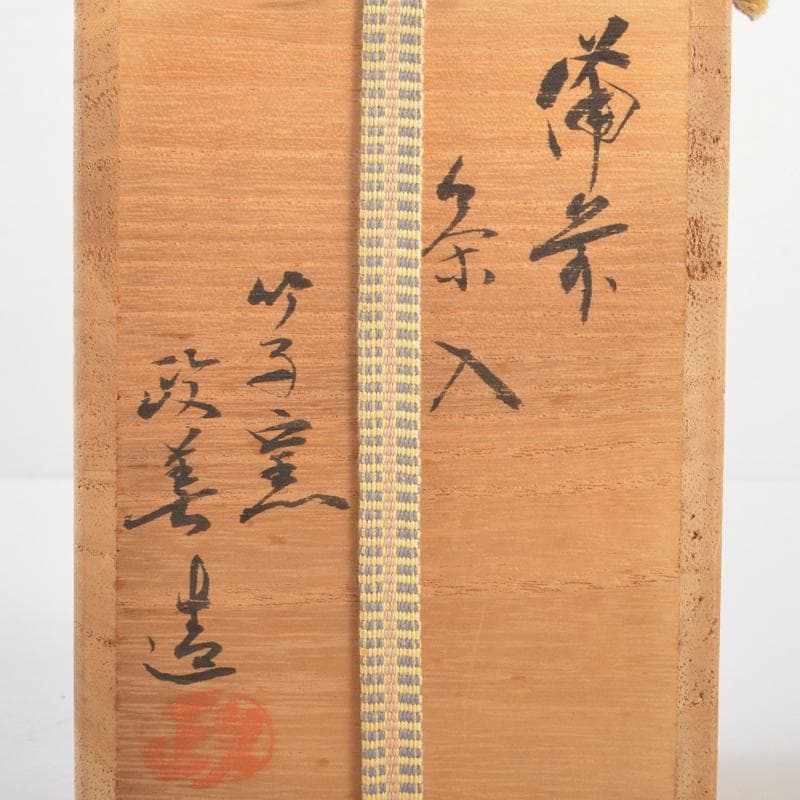 備前
茶入
竹子窯
政善造